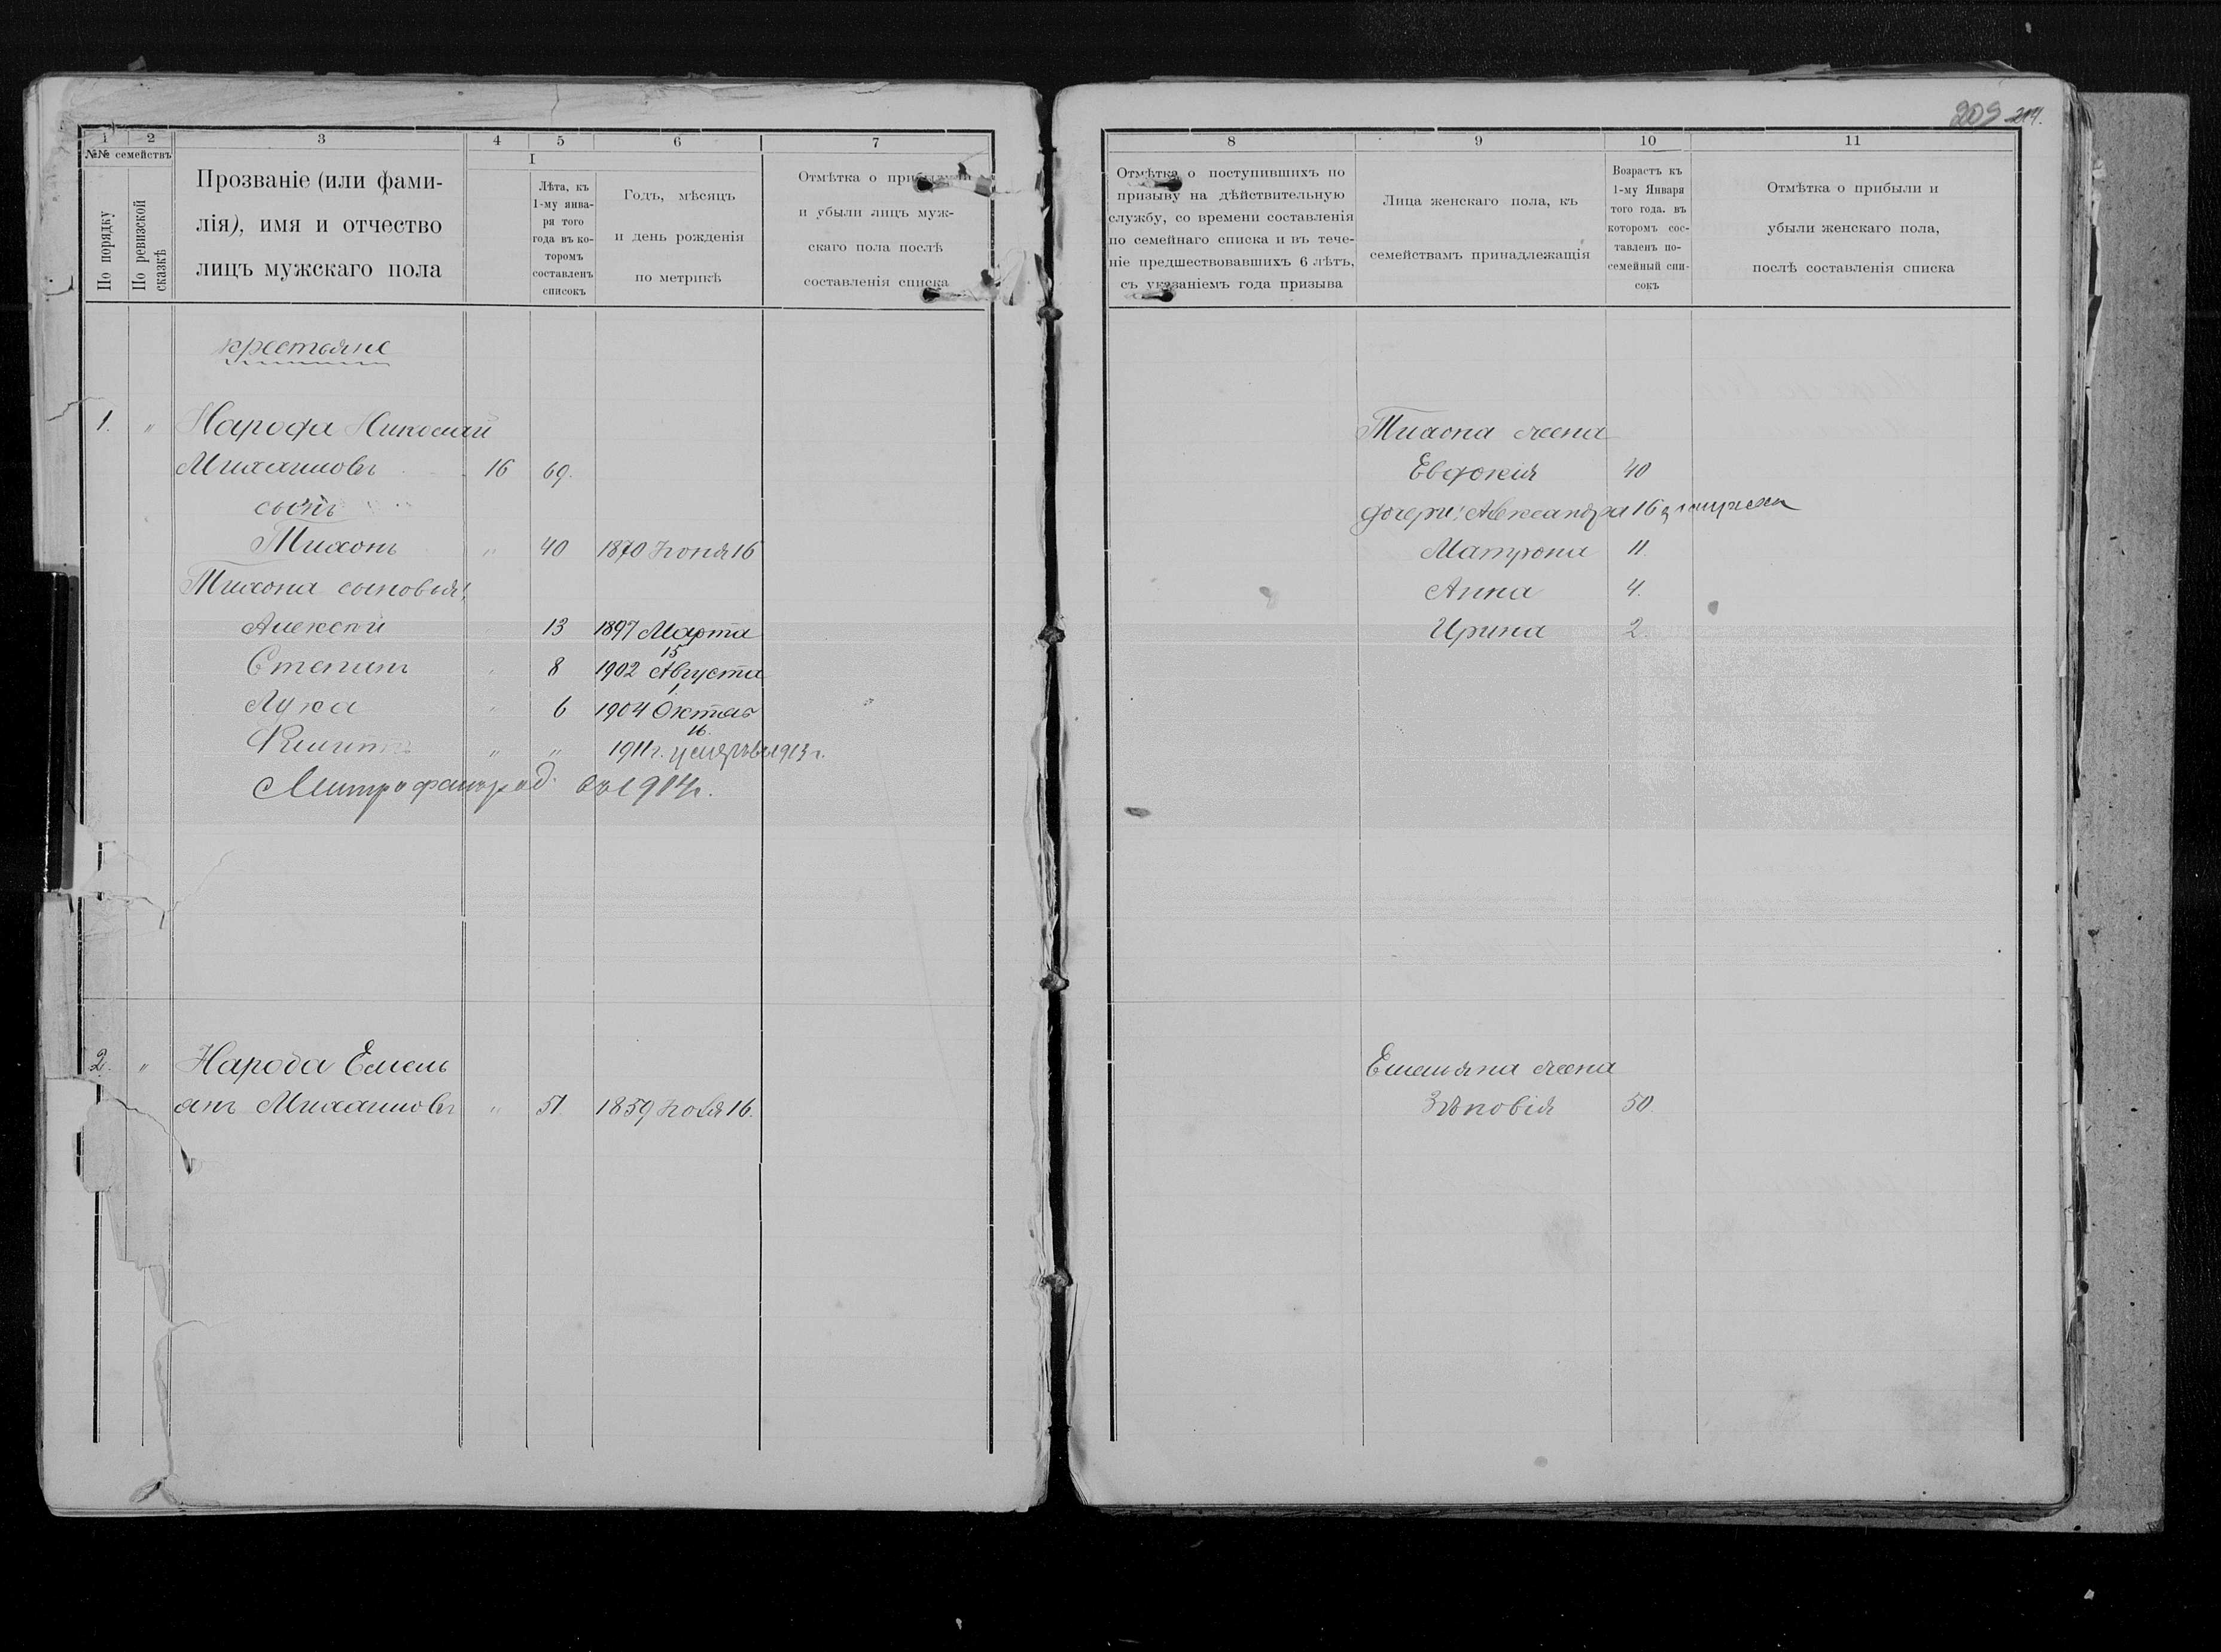 209 214.
1 2 3 4 5 6 7
№№ семействъ
По порядку
По ревизской сказкѣ
Прозваніе (или фами-
лія), имя и отчество
лицъ мужскаго пола
I
Лѣта, къ
1-му янва-
ря того
года въ ко-
торомъ
составленъ
списокъ
Годъ, мѣсяцъ
и день рожденія
по метрикѣ
Отмѣтка о
и убыли лицъ муж-
скаго пола послѣ
составленія списка
крестьяне
1. " Народа Николай
Михаиловъ 16 69.
сынъ
Тихонъ " 40 1870 Іюня 16
Тихона сыновья:
Алексѣй " 13 1897 Марта
15
Степанъ " 8 1902 Августа
1.
Лука " 6 1904 Октяб
16.
" " 1911 г. 1913 г.
Митрофанъ род. 1914 г.
2. " Народа Емель
янъ Михаиловъ " 51. 1859 16.
8 9 10 11
Отмѣтка о поступившихъ по
призыву на дѣйствительную
службу, со времени составленія
по семейнаго списка и въ тече-
ніе предшествовавшихъ 6 лѣтъ,
съ указаніемъ года призыва
Лица женскаго пола, къ
семействамъ принадлежащія
Возрастъ къ
1-му Января
того года. въ
которомъ сос-
тавленъ по-
семейный спи-
сокъ
Отмѣтка о прибыли и
убыли женскаго пола,
послѣ составленія списка
Тихона жена
Евдокія 40
дочери: Александра 16 замужем
Матрона 11.
Анна 4.
Ирина 2.
Емельяна жена
Зѣновія 50.